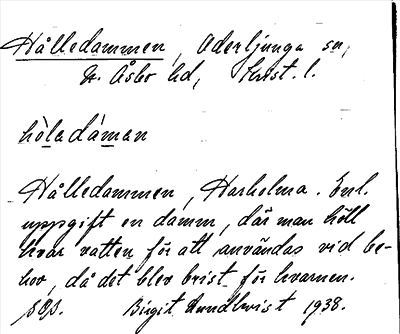 Hålledammen, Oderljunga sn,
N. Åsbo hd, Krist. l.
hòladámen
Hålledammen, Harholma. Enl.
uppgift en damm, där man höll
kvar vatten för att användas vid be-
hov, då det blev brist för kvarnen.
Birgit Lundkvist 1938.